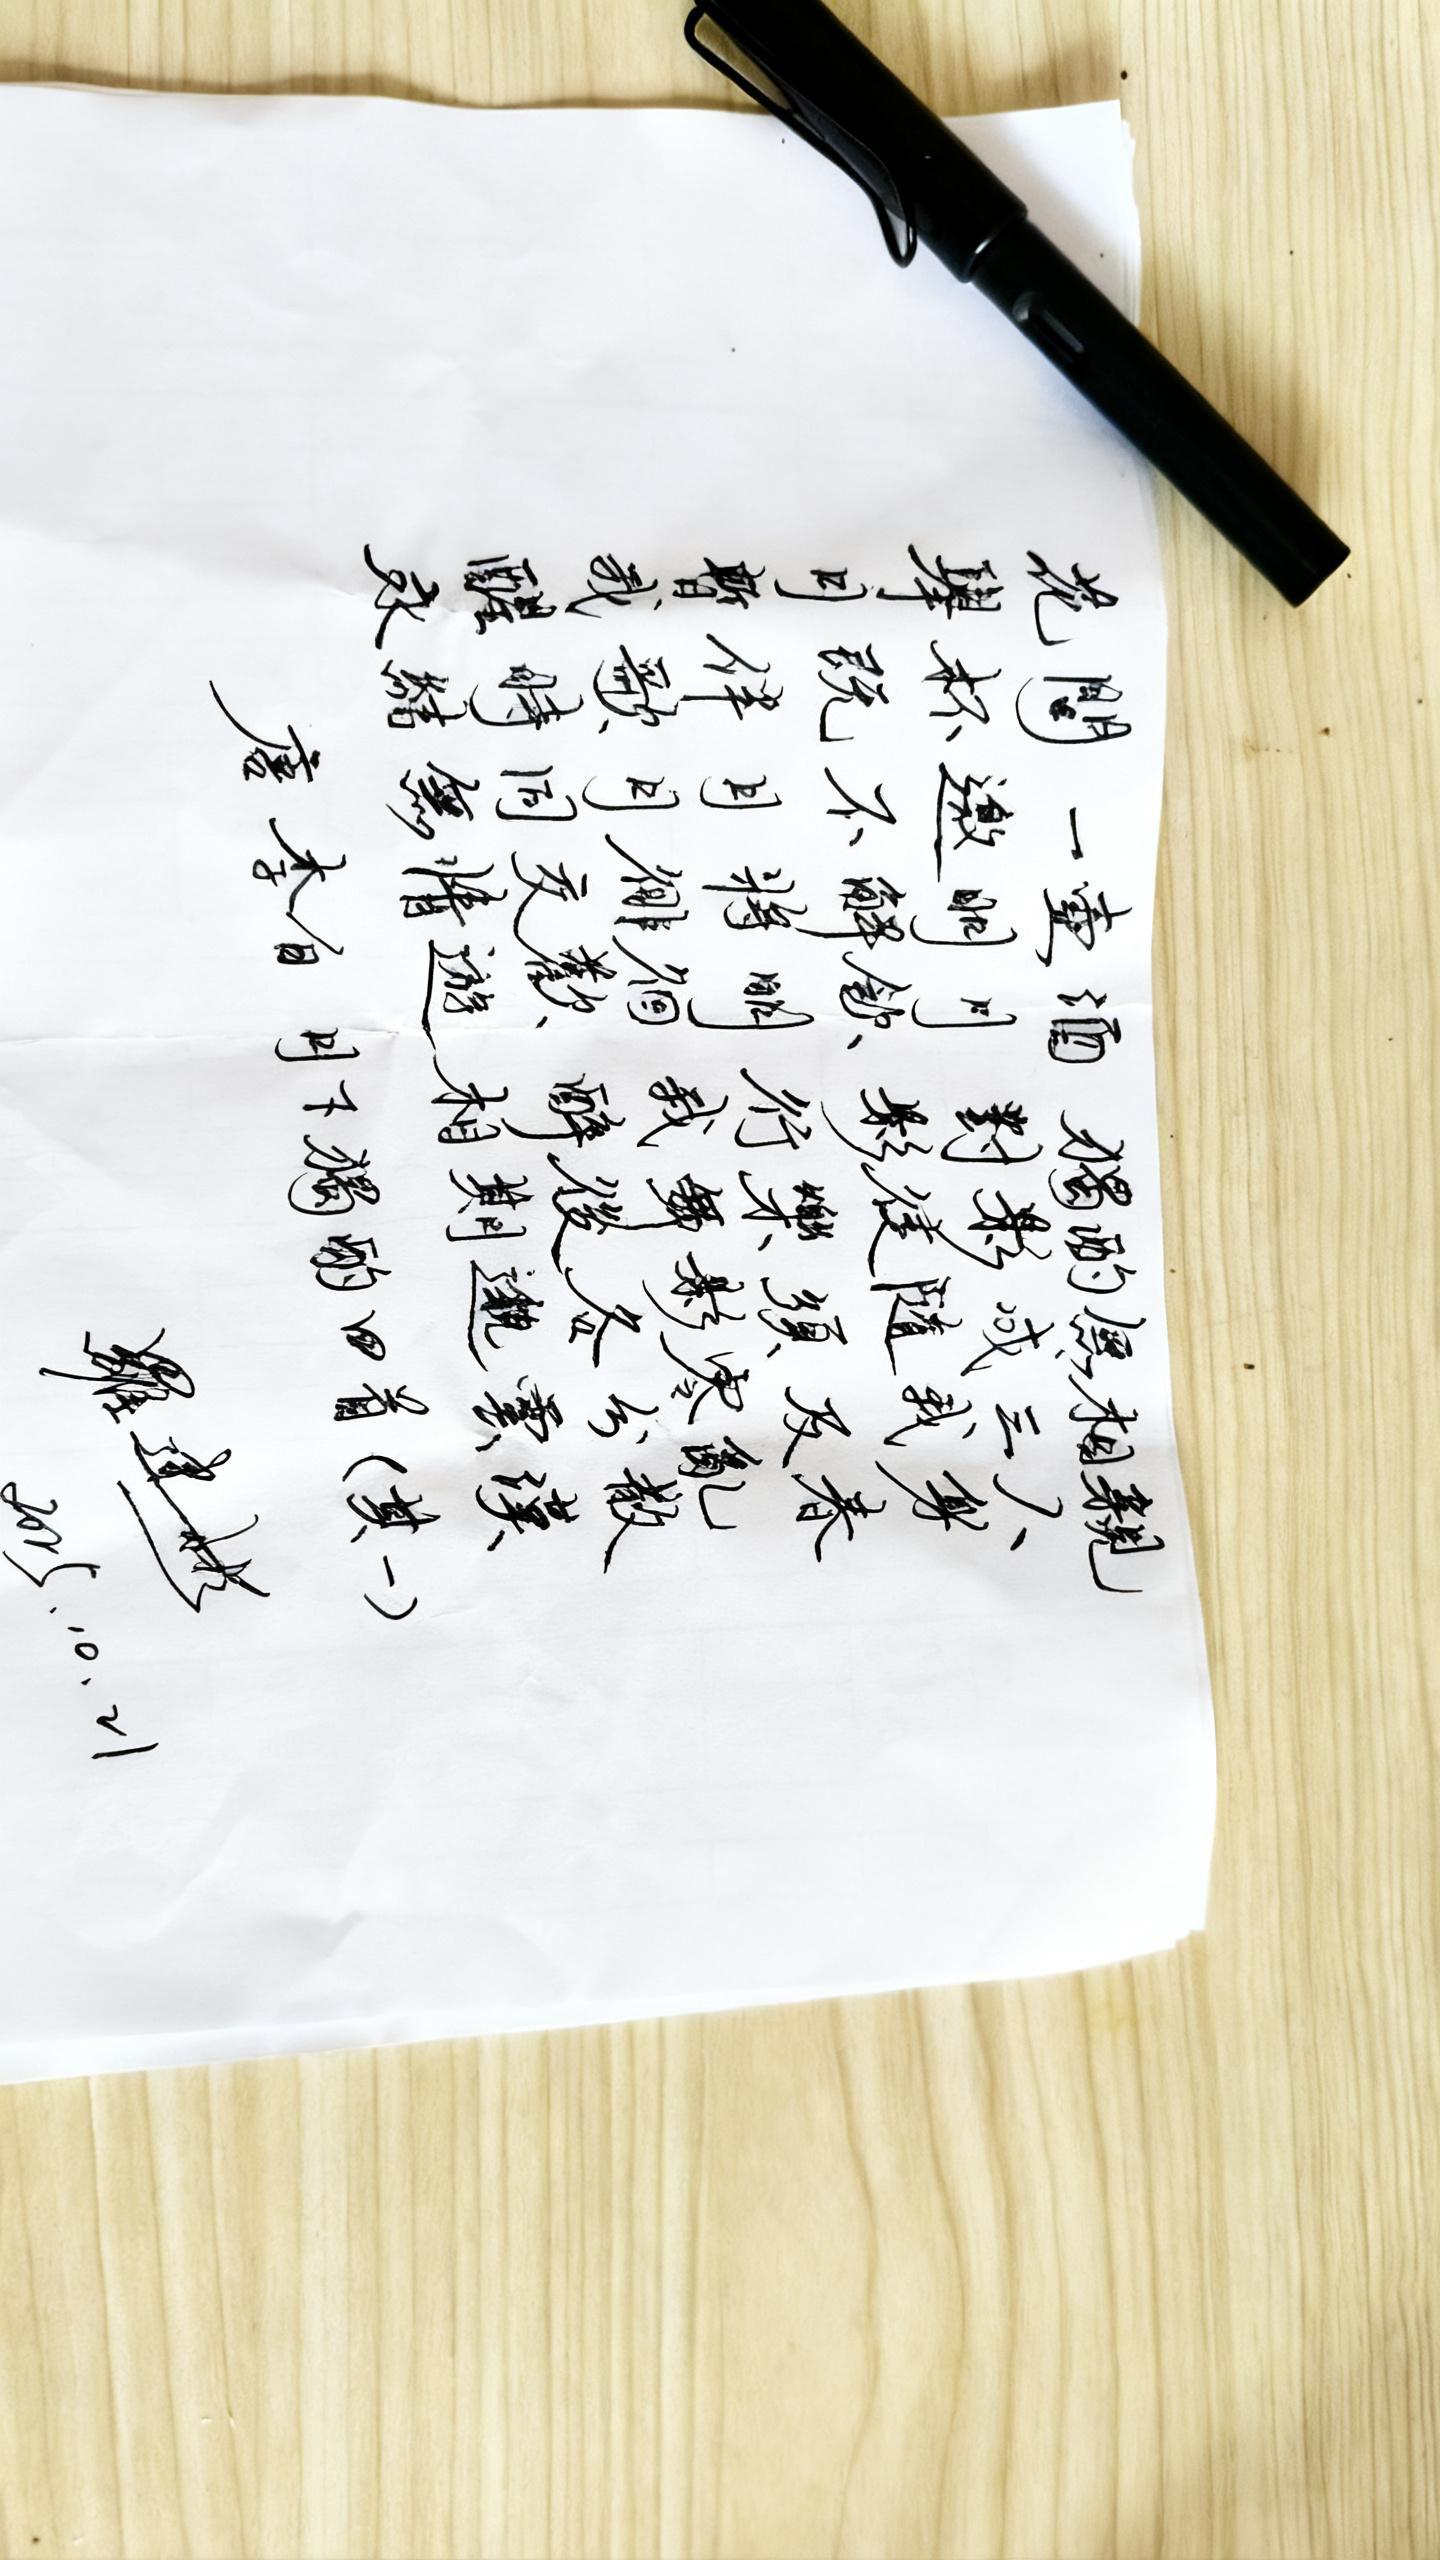 花間一壺酒獨酌無相親
舉杯邀明月對影成三人
月既不解飲影徒隨我身
暫伴月將明行樂須及春
我歌月徘徊我舞影零亂
醒時同交歡醉後各分散
永結無情遊相期邈雲漢
唐李白月下獨酌四首(其一)
2025.10.21